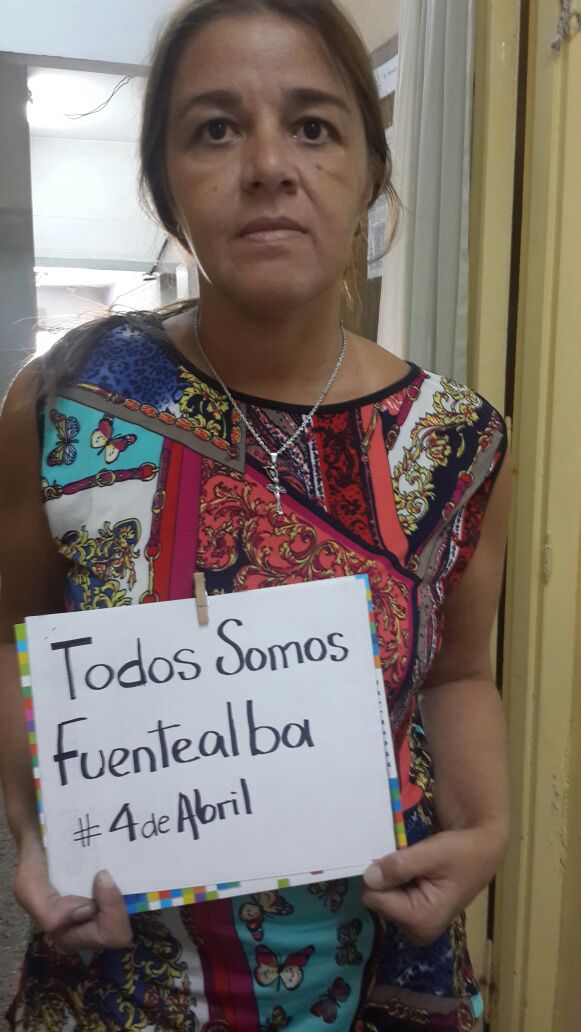 Todos Somos
Fuentealba
#4 de Abril